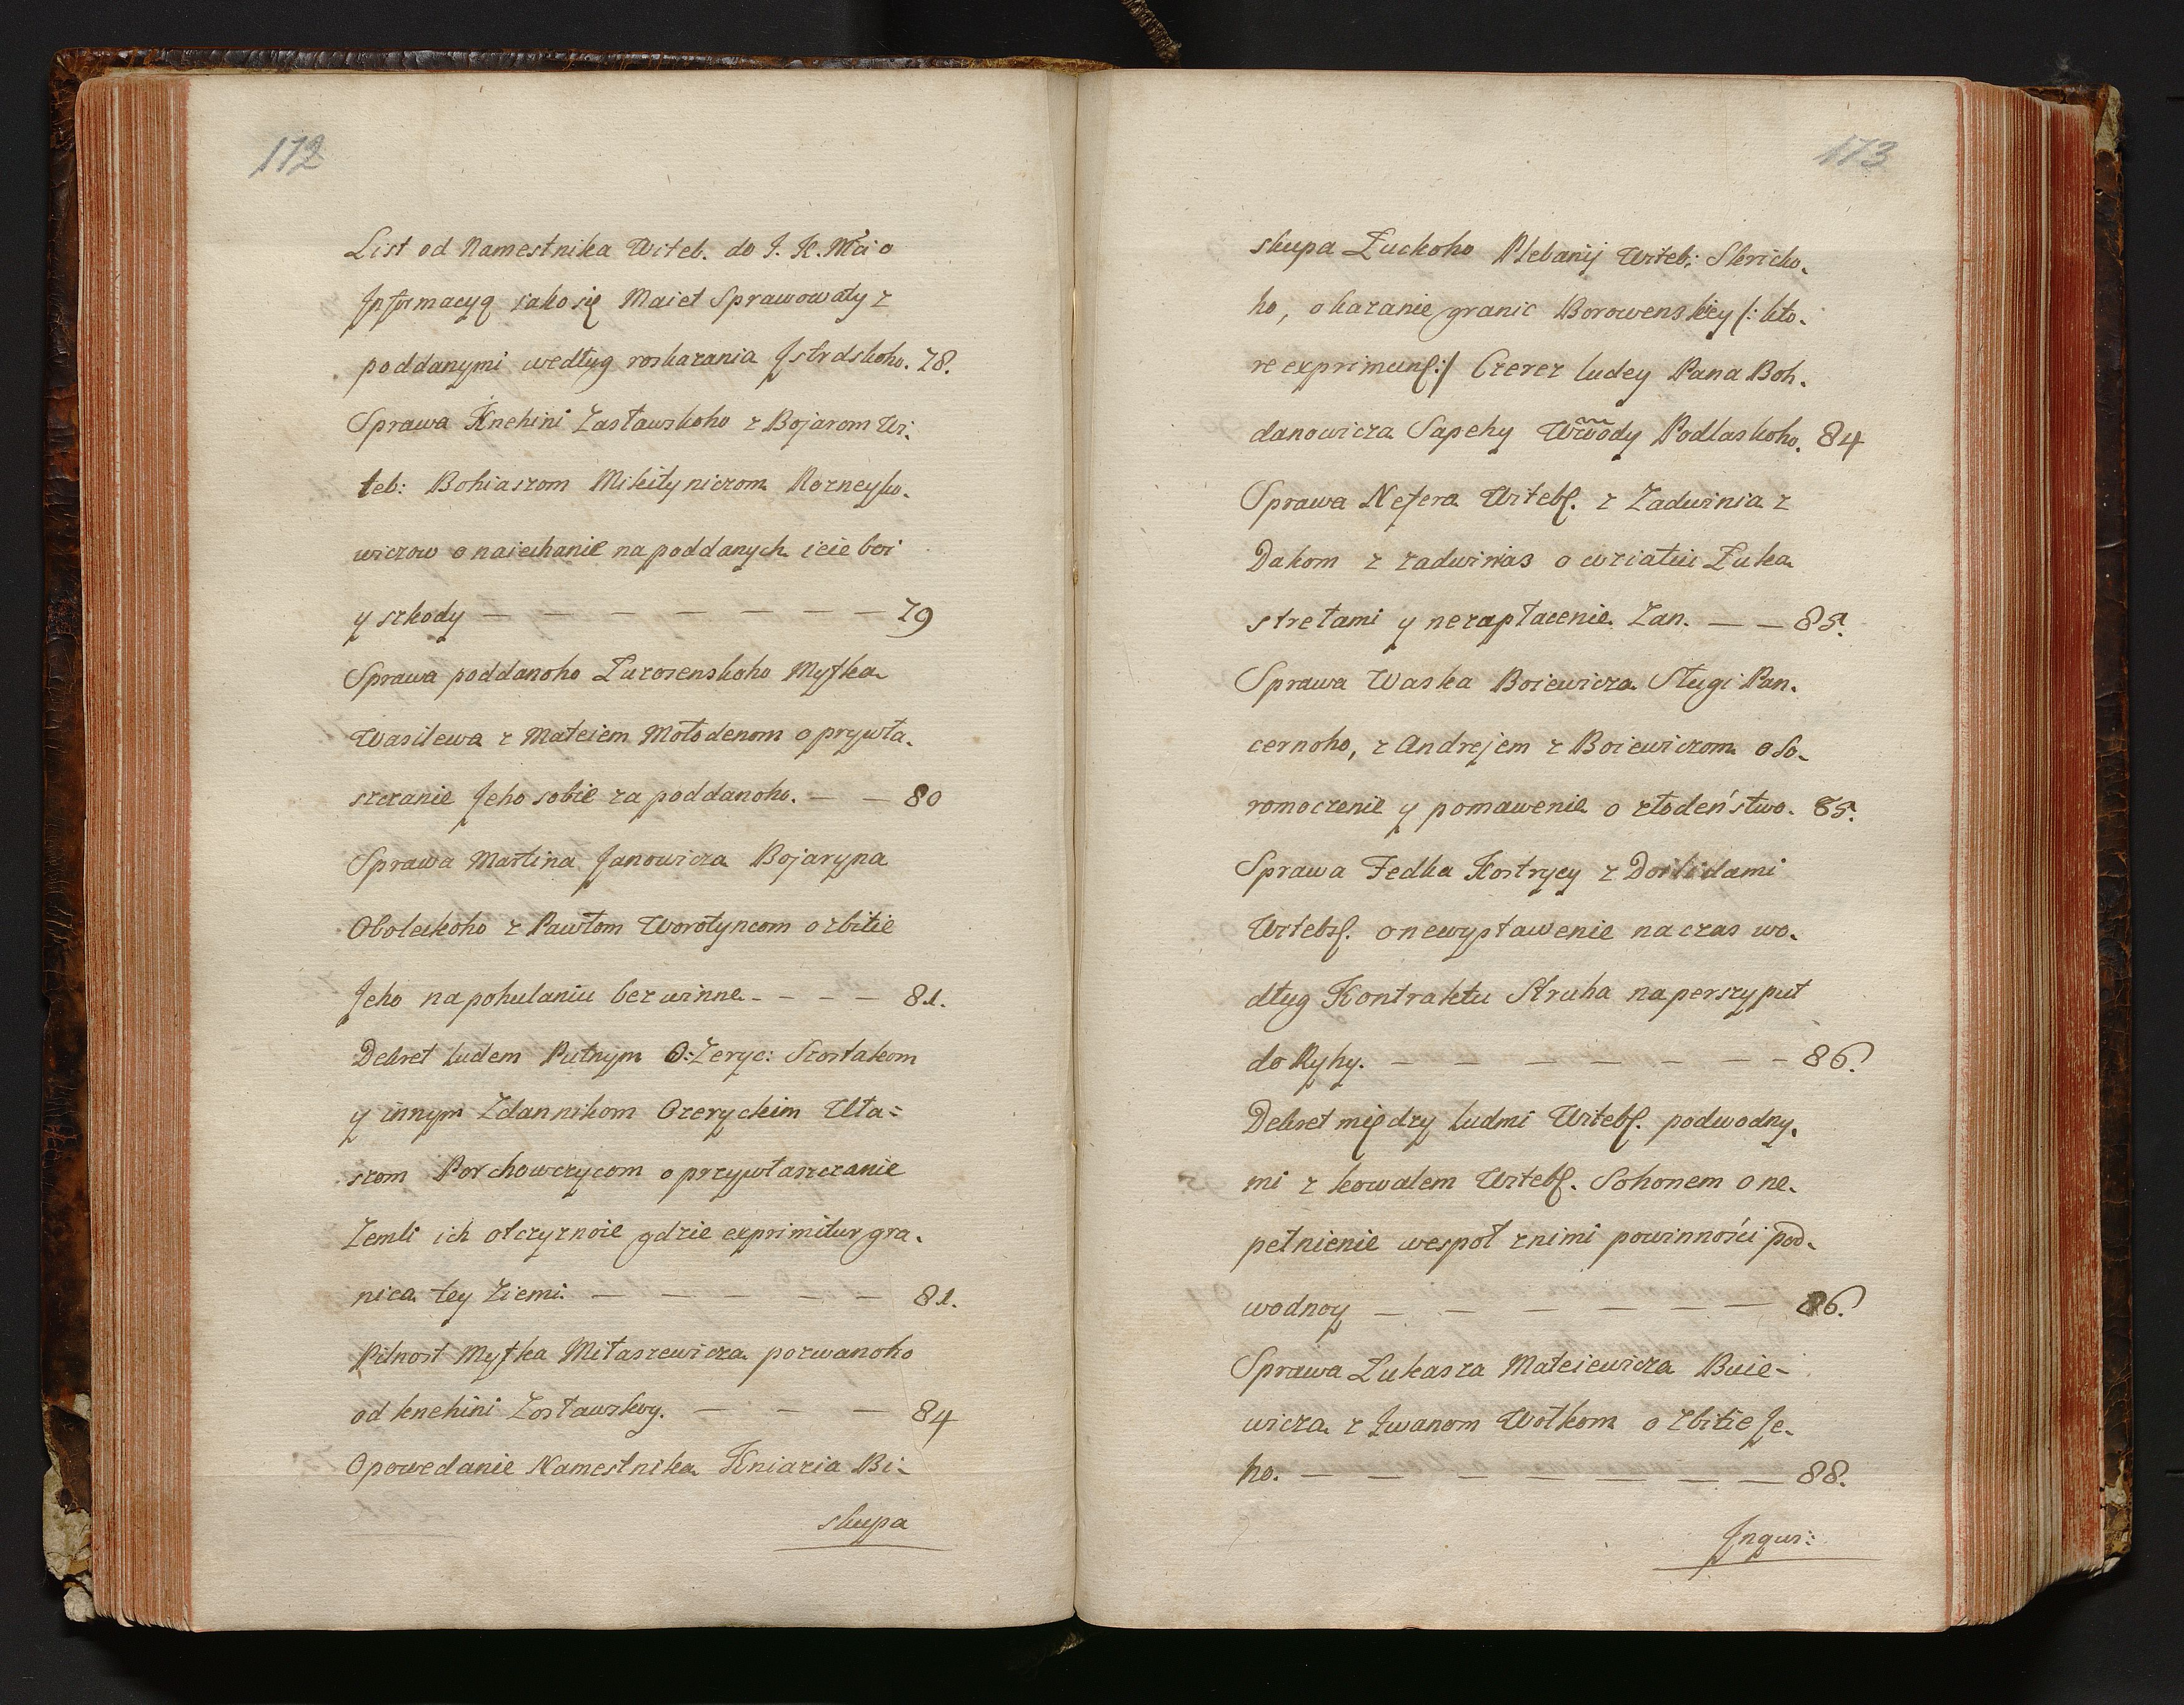 172
List od Namestnika Witeb. do J. K. Mći o
Informacyą iako się Maiet Sprawowaty z
poddanymi według roskazania Hstrdskoho. 78.
Sprawa Knehini Zasławskoho z Bojarom Wi.
teb: Bohiaszom Mikityniczom Rozneyko.
wiczow o naiechanie na poddanych icie boi
y szkody — — — — — — — 79
Sprawa poddanoho Łuzosenskoho Myſka
Wasilewa z Mateiem Mołodenom o prywła.
szczanie Jeho sobie za poddanoho. — — 80
Sprawa Martina Janowicza Bojaryna
Oboleckoho z Pawłom Worotyncom o zbitie
Jeho na pohulaniu bez winne. - - - — 81.
Dekret ludem Putnym O:Zeryc: Szostakom
y innym Zdannikom Ozeryckim Ula=
szom Porchowczycom o przywłaszczanie
Zemli ich otczyznoie gdzie exprimitur gra.
nica tey Ziemi. — — — — — 81.
Pilnost Myſka Miłaszewicza pozwanoho
od knehini Zosławskoy. — — — 84
Opowedanie Namestnika Kniazia Bi-
skupa
173
skupa Łuckoho Plebanij Witeb: Skricko.
ho, okazanie granic Borowenskiey /: kto.
re exprimunſ:/ Czerez ludey Pana Boh.
danowicza Sapehy Wwody Podlaskoho. 84
Sprawa Nefera Witebſ. z Zadwinia z
Dakom z zadwinias o wziatii Łuka
stretami y nezapłacenie Zan. — — 85.
Sprawa Waska Boiewicza Sługi Pan.
cernoho, z Andrejem z Boiewiczom o So.
romoczenie y pomawenie o złodeństwo. 85.
Sprawa Fedka Kostrycy z Doilidami
Witebsſ. o newystawenie na czas we.
dłyg Kontraktu Struha na perszy put
do Ryhy. — — — — — — — 86.
Dekret między ludmi Witebſ. podwodny.
mi z kowalem Witebſ. Sohonem o ne.
pełnienie wespoł z nimi powinności pod.
wodnoy — — — — — — 86.
Sprawa Łukasza Mateiewicza Buie-
wicza z Iwanom Wołkom o zbitie Je.
ho. — — — — — — — — 88.
Inqui: